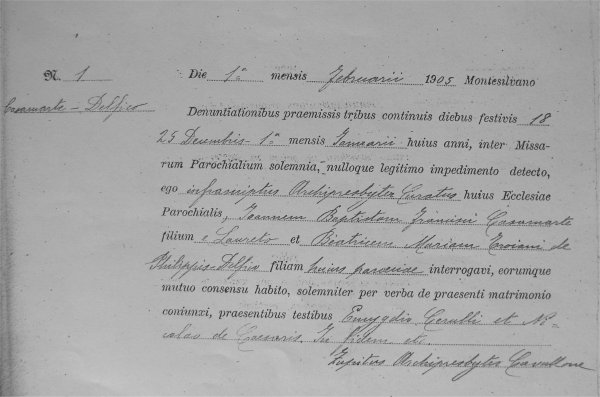 N. 1 Die 1ª mensis Februarii 1905 Montesilvano
Casamarte - Delfico
Denuntiationibus praemissis tribus continuis diebus festivis 18
25 Decembris - 1ª mensis Januarii huius anni, inter Missa-
rum Parochialium solemnia, nulloque legitimo impedimento detecto,
ego infrascriptus Archipresbyter Curatus huius Ecclesiae
Parochialis, Joannem Baptistam Francisci Casamarte
filium e Laureto et Beatricem Mariam Troiani de
Philippis-Delfico filiam huius paroeciae interrogavi, eorumque
mutuo consensu habito, solemniter per verba de praesenti matrimonio
coniunxi, praesentibus testibus Emygdio Cerulli et Ni-
colao de Caesaris. In fidem etc
Archipresbyter Cavallone